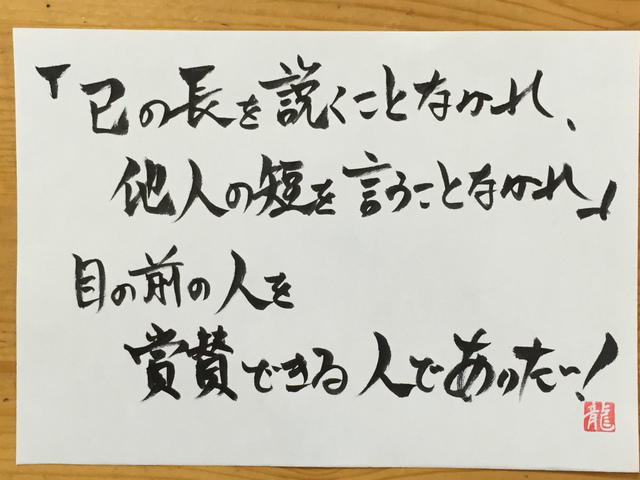 「己の長を説くことなかれ、
他人の短を言うことなかれ」
目の前の人を
賞賛できる人でありたい!
龍